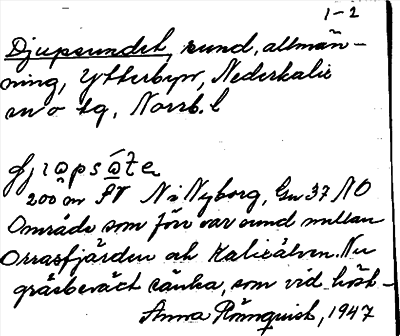 1-2
Djupsundet, sund, allmän-
ning, Ytterbyn, Nederkalix
sn o tg, Norrb. l
200 m SV N:a Nyborg, Gu 37 NO
Område som förr var sund mellan
Orrasfjärden och Kalixälven. Nu
gräsbeväxt sänka, som vid höst-
Anna Rönnquist, 1947